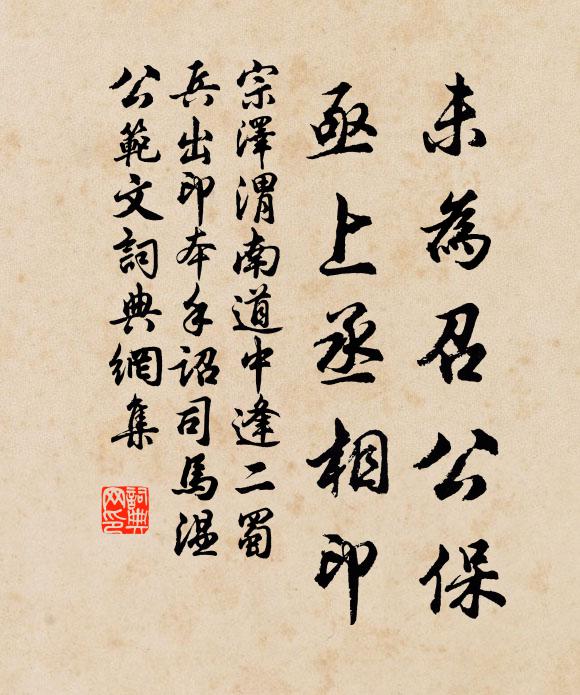 未為召公保
亟上丞相印
宗澤渭南道中逢二蜀
兵出印本手詔司馬溫
公範文詞典網集
詞典
网印